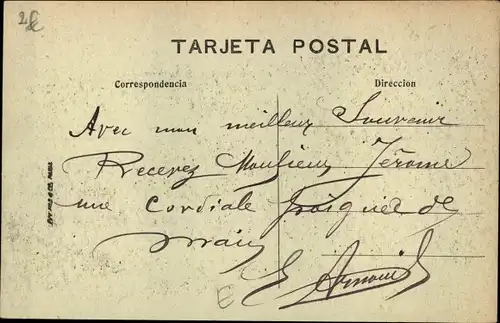 TARJETA POSTAL
Correspondencia
Direccion
Avec mon meilleur Souvenir
Recevez Monsieur Jérome
une Cordiale Poignée de
main
E